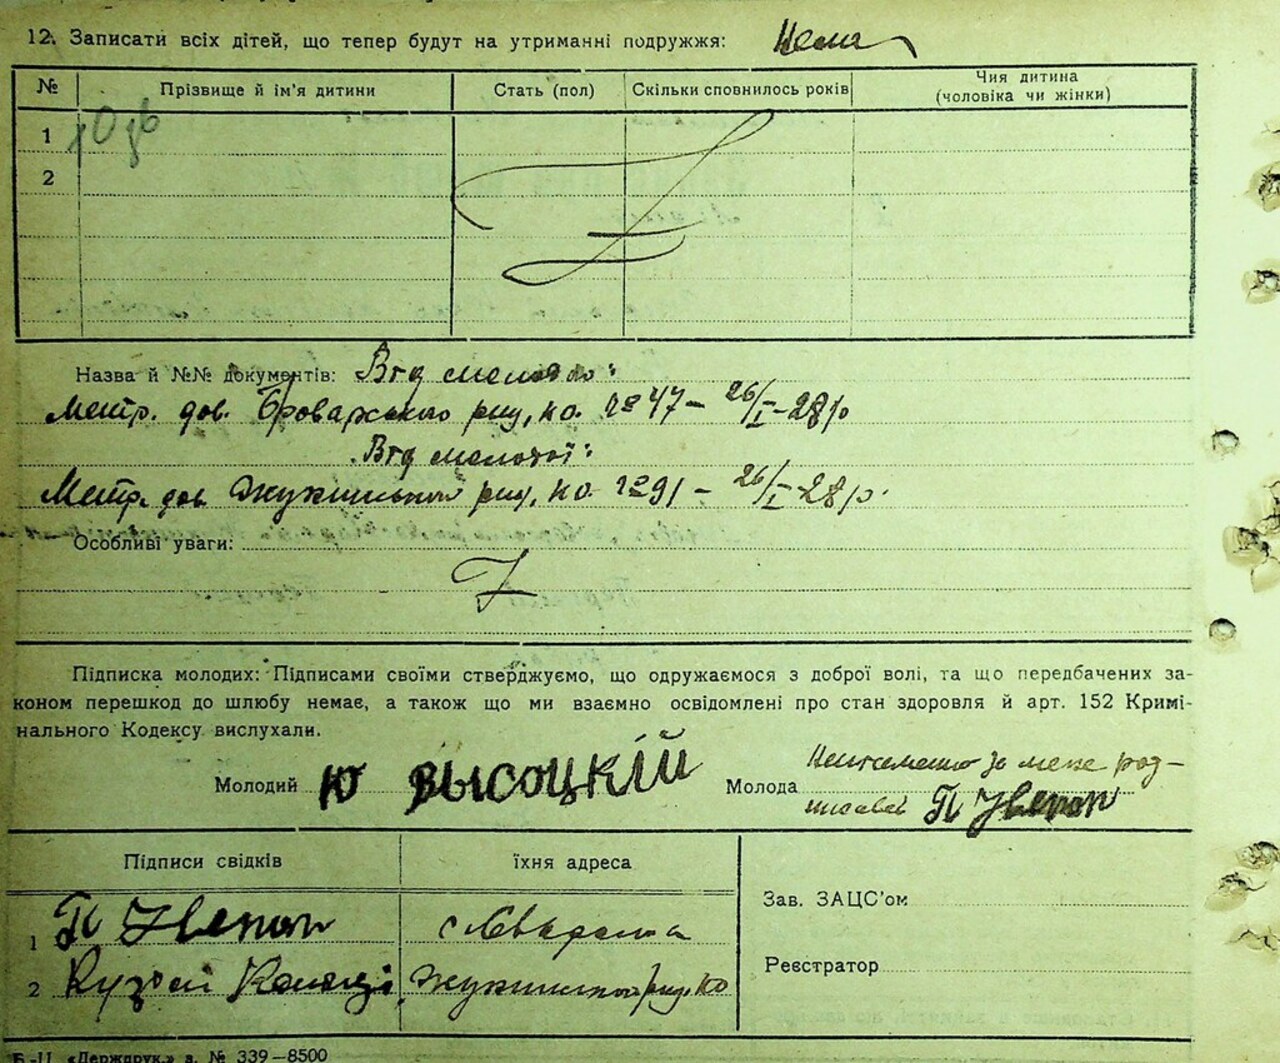 12. Записати всіх дітей, що тепер будут на утриманні подружжя: Нема
№ Прізвище й ім'я дитини Стать (пол) Скільки сповнилось років Чия дитина (чоловіка чи жінки)
1
2
Назва й №№ документів: Від молодого:
Метр. дов. Броварського рику, ко. № 47 – 26/I–28 р
Від молодої:
Метр. дов. № 91 – 26/I–28 р.
Особливі уваги:
Підписка молодих: Підписами своїми стверджуємо, що одружаємося з доброї волі, та що передбачених за-
коном перешкод до шлюбу немає, а також що ми взаємно освідомлені про стан здоровля й арт. 152 Кримі-
нального Кодексу вислухали.
Молодий Ю Высоцкій Молода Неписьменна за мене роз-
писався П
Підписи свідків їхня адреса
1 П
2
Зав. ЗАЦС'ом
Реєстратор
Б-ІІ. «Держдрук.» з. № 339—8500